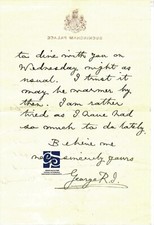 to dine with you on
Wednesday night as
usual. I trust it
may be warmer by
then. I am rather
tired as I have had
so much to do lately.
Believe me
sincerely yours
George R.I.